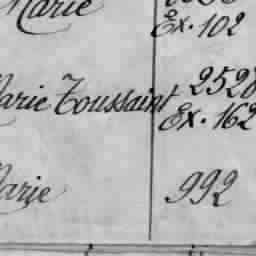 Marie
Ex. 102
Marie Toussaint 2528
Ex. 162
Marie 992